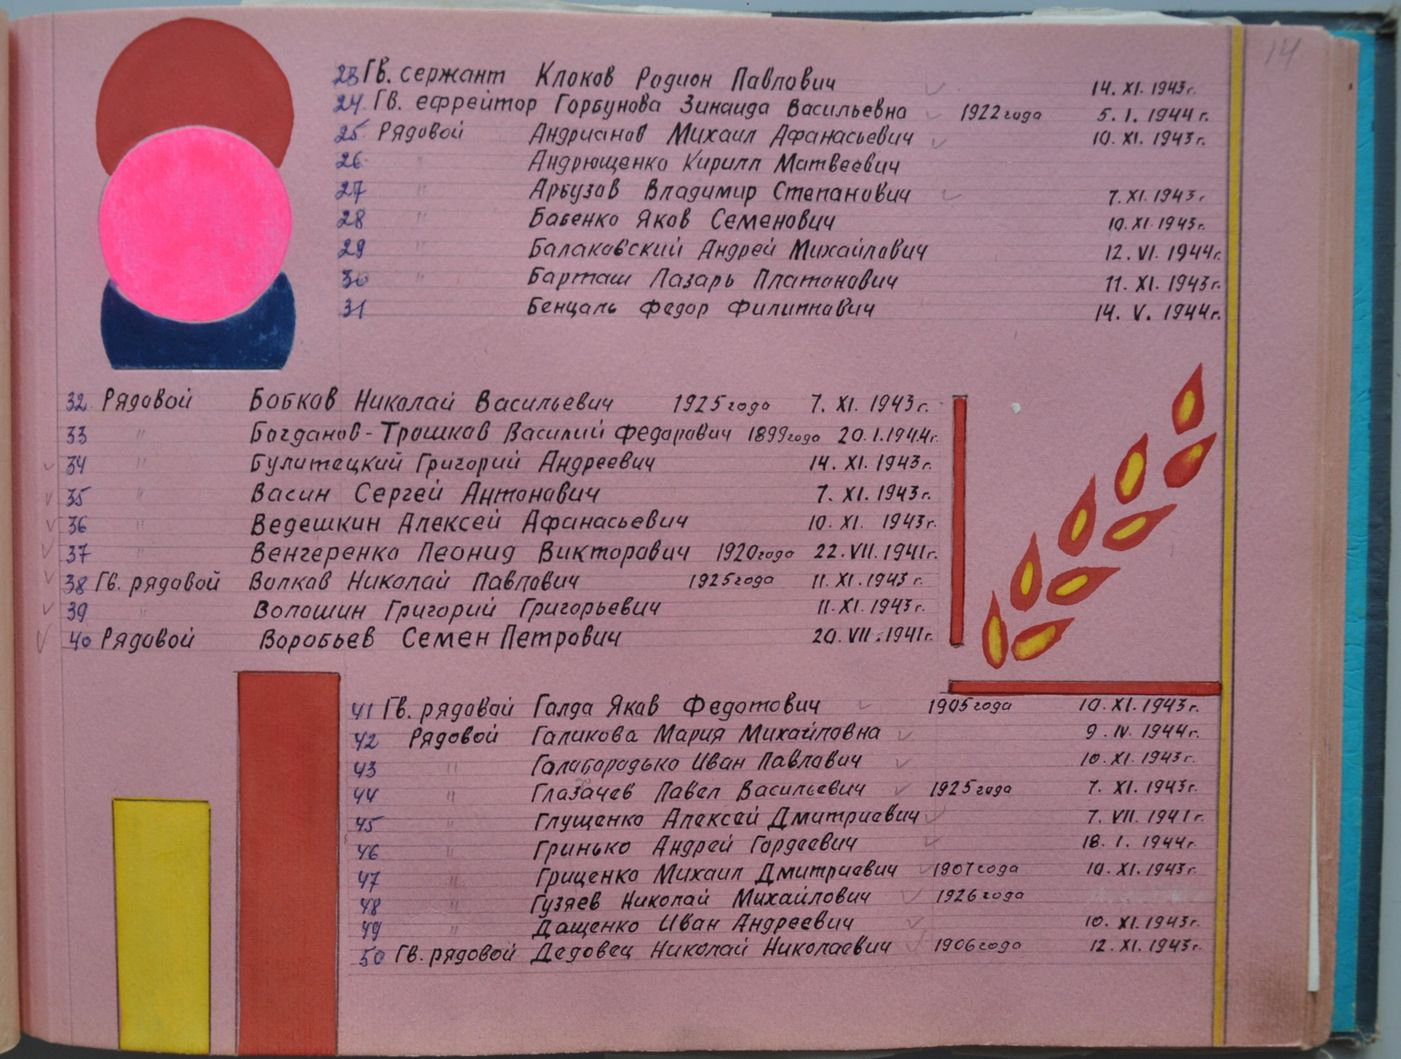 14
23 Гв. сержант Клоков Родион Павлович 14. XI. 1943г.
24. Гв. ефрейтор Горбунова Зинаида Васильевна 1922 года 5. I. 1944 г.
25. Рядовой Андрианов Михаил Афанасьевич 10. XI. 1943г.
26. " Андрющенко Кирилл Матвеевич
27 " Арбузов Владимир Степанович 7. XI. 1943г.
28 " Бабенко Яков Семенович 10. XI. 1943г.
29 " Балаковский Андрей Михайлович 12. VI. 1944г.
30 " Барташ Лазарь Платонович 11. XI. 1943г.
31 Бенцаль Федор Филиппович 14. V. 1944г.
32. Рядовой Бобков Николай Васильевич 1925 года 7. XI. 1943г.
33 " Богданов-Трошков Василий Федорович 1899 года 20. I. 1944г.
34 " Булитецкий Григорий Андреевич 14. XI. 1943г.
35 " Васин Сергей Антонович 7. XI. 1943г.
36 " Ведешкин Алексей Афанасьевич 10. XI. 1943г.
37 " Венгеренко Леонид Викторович 1920 года 22. VII. 1941г.
38 Гв. рядовой Волков Николай Павлович 1925 года 11. XI. 1943г.
39 " Волошин Григорий Григорьевич 11. XI. 1943г.
40 Рядовой Воробьев Семен Петрович 20. VII. 1941г.
41 Гв. рядовой Галда Яков Федотович 1905 года 10. XI. 1943г.
42 Рядовой Галикова Мария Михайловна 9. IV. 1944г.
43 " Голобородько Иван Павлович 10. XI. 1943г.
44 " Глазачев Павел Васильевич 1925 года 7. XI. 1943г.
45 " Глущенко Алексей Дмитриевич 7. VII. 1941г.
46 " Гринько Андрей Гордеевич 18. I. 1944г.
47 " Гриценко Михаил Дмитриевич 1907 года 10. XI. 1943г.
48 " Гузяев Николай Михайлович 1926 года
49 " Дащенко Иван Андреевич 10. XI. 1943г.
50 Гв. рядовой Дедовец Николай Николаевич 1906 года 12. XI. 1943г.